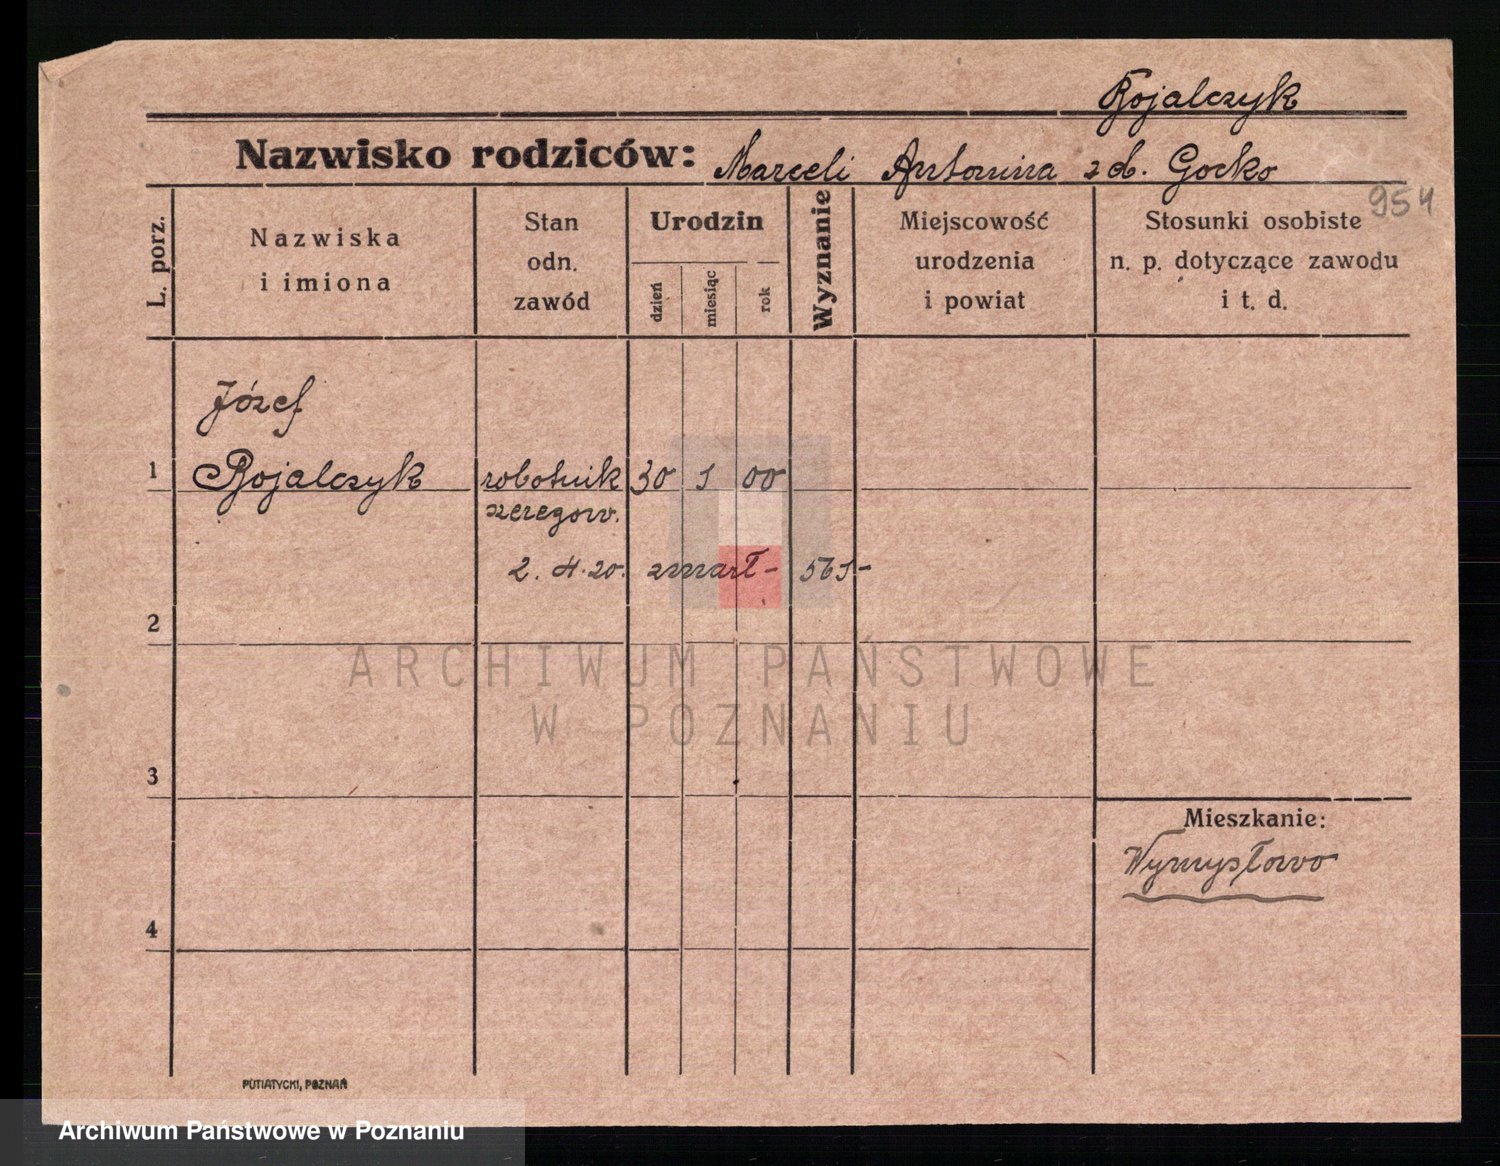 Bojalczyk
Nazwisko rodziców: Marceli Antonina zd. Gocko
954
L. porz.
Nazwiska
i imiona
Stan
odn.
zawód
Urodzin
dzień
miesiąc
rok
Wyznanie
Miejscowość
urodzenia
i powiat
Stosunki osobiste
n. p. dotyczące zawodu
i t. d.
Józef
1 Bojalczyk robotnik 30 1 00
szeregow.
2. 4. 20. zmarł - 561-
2
3
Mieszkanie:
Wymysłowo
4
PUTIATYCKI, POZNAŃ
ARCHIWUM PAŃSTWOWE
W POZNANIU
Archiwum Państwowe w Poznaniu